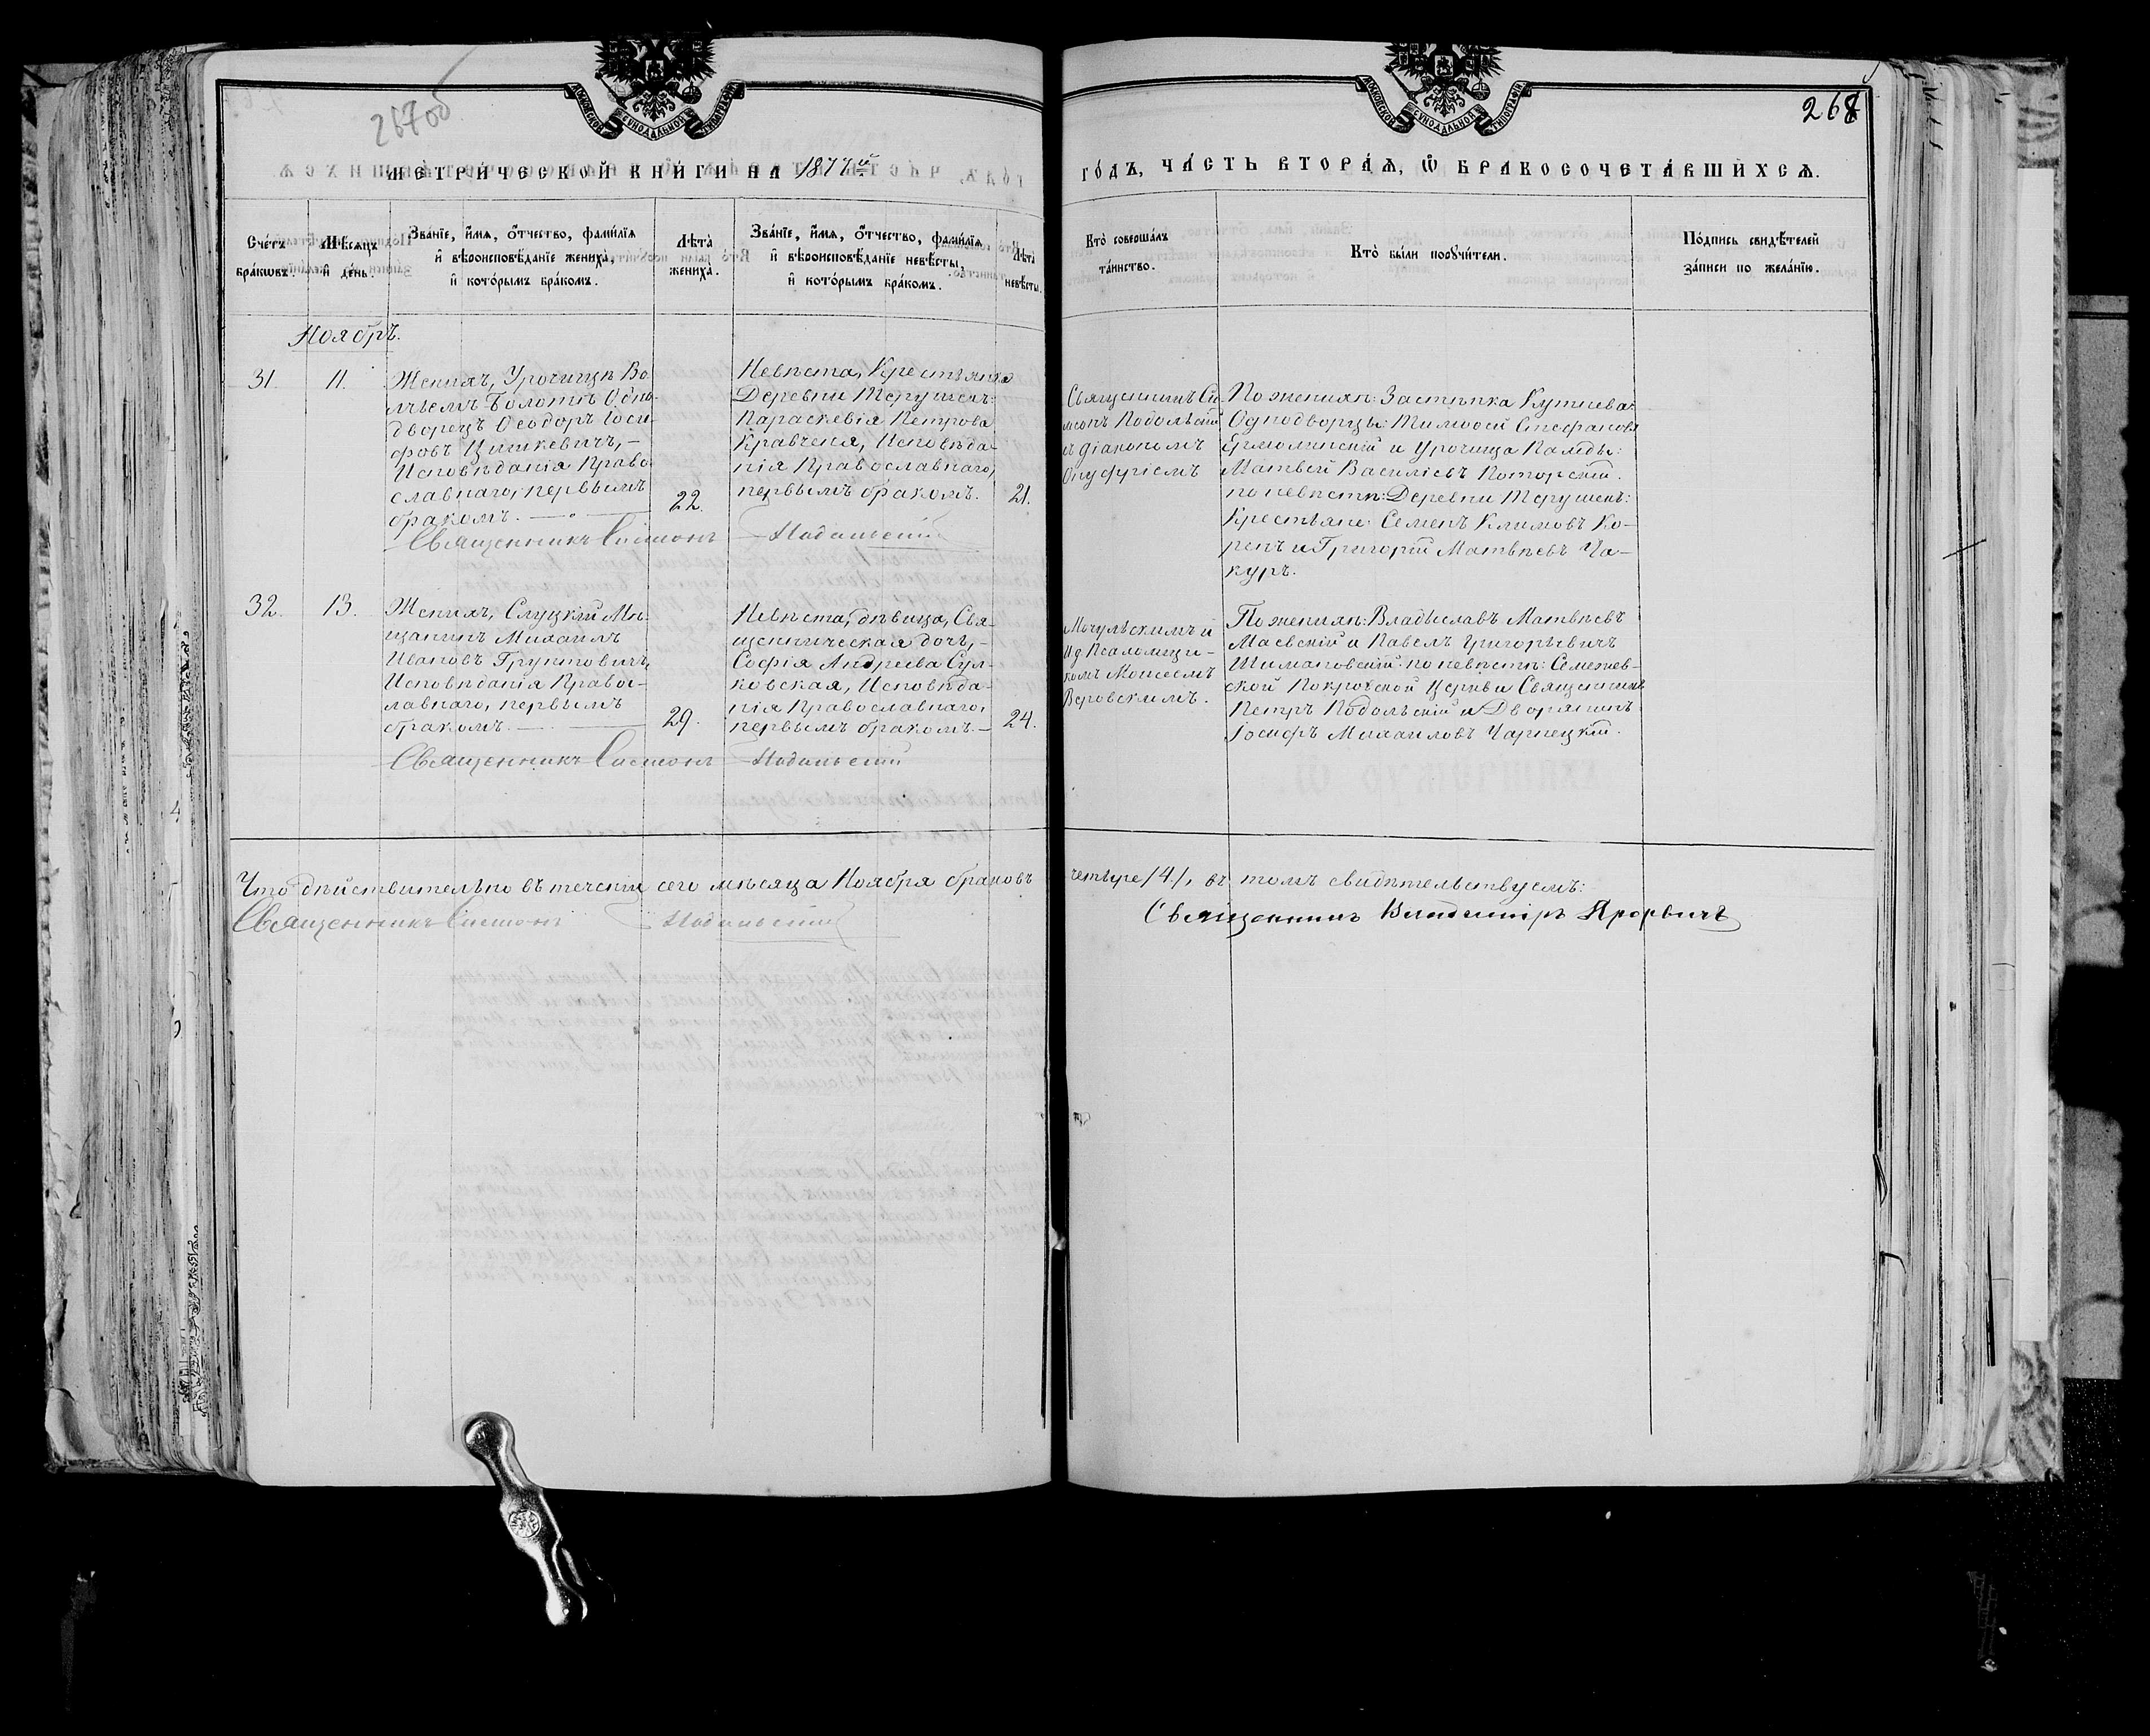 267об
268
МЕТРИ́ЧЕСКОЙ КНИ́ГИ НА 1877й
ГО́ДЪ, ЧА́СТЬ ВТОРА́Я, Ѿ БРАКОСОЧЕТА́ВШИХСЯ.
МОСКОВСКОЙ СѴНОДАЛЬНОЙ ТИПОГРАФІИ
МОСКОВСКОЙ СѴНОДАЛЬНОЙ ТИПОГРАФІИ
Сче́тъ
бра́ковъ.
Мѣ́сяцъ
и де́нь.
Зва́нїе, и́мя, о́тчество, фами́лїя
и вѣроисповѣ́данїе жениха̀,
и кото́рымъ бра́комъ.
Лѣта̀
жениха̀.
Зва́нїе, и́мя, о́тчество, фами́лїя
и вѣроисповѣ́данїе невѣ́сты,
и кото́рымъ бра́комъ.
Лѣта̀
невѣ́сты.
Кто̀ соверша́лъ
та́инство.
Кто̀ бы́ли поручи́тели.
По́дпись свидѣ́телей
за́писи по жела́нїю.
Ноябрь.
31.
11.
Женихъ, Урочища Во-
лчьемъ-Болотѣ Одно-
дворецъ Ѳеодоръ Іоси-
фовъ Цишкевичъ, –
Исповѣданія Право-
славнаго, первымъ
бракомъ.
22.
Невѣста, Крестьянка
Деревни Терушекъ:
Параскевія Петрова
Кравченя, Исповѣда-
нія Православнаго,
первымъ бракомъ.
21.
Священникъ Си-
меонъ Подольскій
съ діакономъ
Онуфріемъ
По женихѣ: Застѣнка
Однодворцы: Тимоѳей Стефановъ
Ермолинскій и Урочища
Матвей Васильевъ
по невѣстѣ: Деревни Терушекъ:
Крестьяне: Семенъ Климовъ Ко-
рень и Григорій Матвѣевъ Ча-
куръ.
Священникъ Симеонъ Подольскій
32.
13.
Женихъ, Слуцкій Мѣ-
щанинъ Михаилъ
Ивановъ Грунтовичъ,
Исповѣданія Правос-
лавнаго, первымъ
бракомъ.
29.
Невѣста, дѣвица, Свя-
щенническая дочь, –
Софія Андреева Сул-
ковская, Исповѣда-
нія Православнаго,
первымъ бракомъ. –
24.
Мочульскимъ и
Ид. Псаломщи-
комъ Моисеемъ
Веровскимъ.
По женихѣ: Владиславъ Матвѣевъ
Маевскій и Павелъ Григорьевичъ
Шимановскій. по невѣстѣ: Семежев-
ской Покровской Церкви Священникъ
Петръ Подольскій и Дворянинъ
Іосифъ Михаиловъ Чарнецкій.
Священникъ Симеонъ Подольскій
Что дѣйствительно въ теченіи сего мѣсяца Ноября браковъ четыре /4/, въ томъ свидѣтельствуемъ:
Священникъ Симеонъ Подольскій
Священникъ Владимiръ